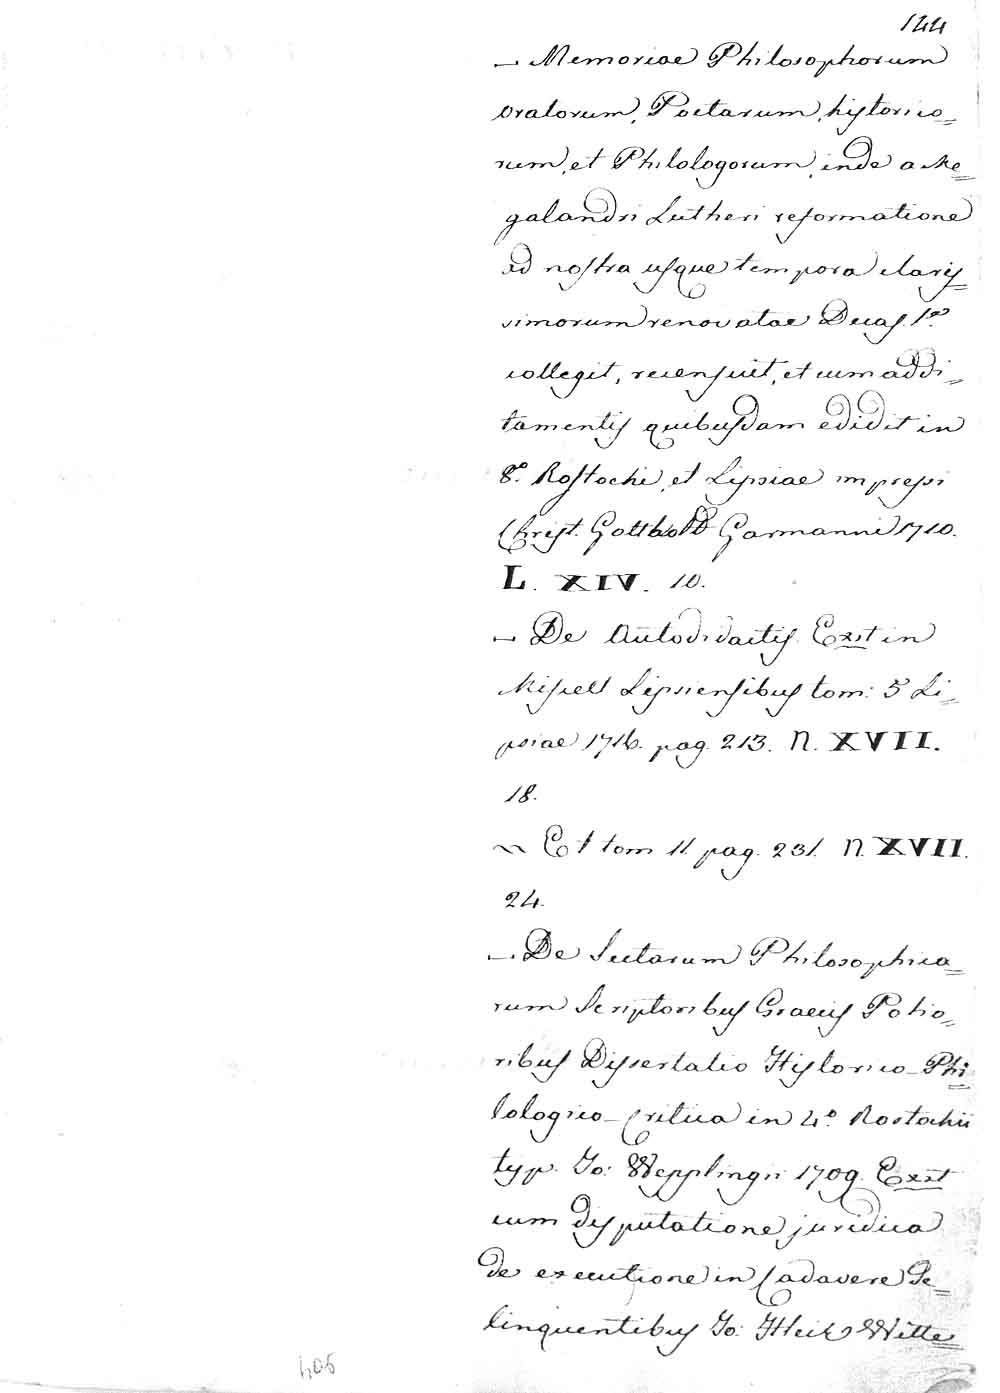 144
— Memoriae Philosophorum
Oratorum, Poetarum, historico=
rum, et Philologorum, inde a Me=
galandri Lutheri reformatione
ad nostra usque tempora claris=
simorum renovatae Decas 1.a
collegit, recensuit, et cum addi=
tamentis quibusdam edidit in
8.° Rostochi, et Lipsiae impressi
Christ. Gottbold Garmanni 1710.
L. XIV. 10.
— De Autodidactis. Exst in
Miscell Lipsiensibus tom: 5 Li=
psiae 1716. pag. 213. N. XVII.
18.
~ Et tom 11. pag. 231. N. XVII.
24.
— De Sectarum Philosophica=
rum Scriptoribus Graecis Potio=
ribus Dissertatio Historico-Phi=
lologico-Critica in 4.° Rostochii
typ. Jo: Wepplingii 1709. Exst
cum disputatione juridica
de executione in Cadavere De=
linquentibus Jo: Heik Witte=
405